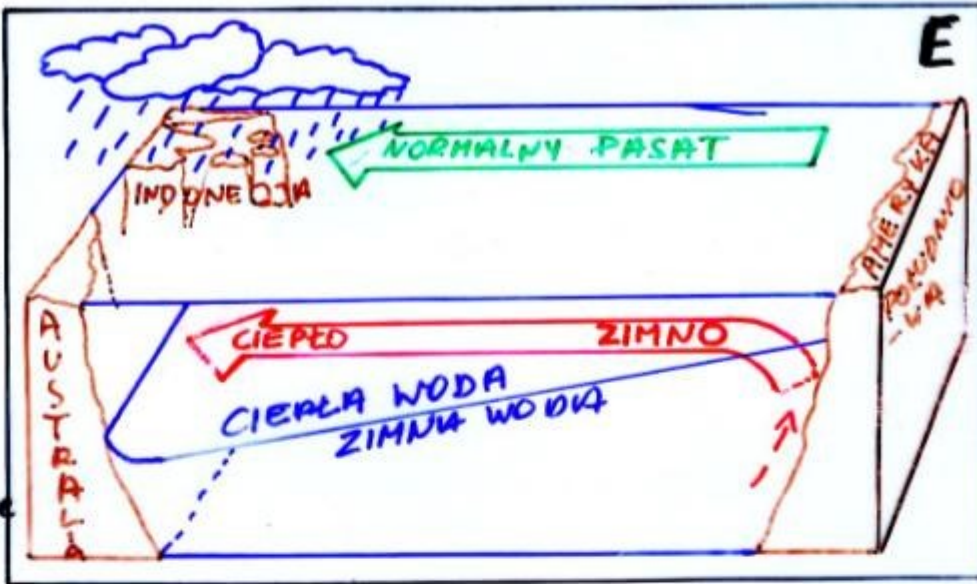 E
NORMALNY PASAT
INDONEZJA
AMERYKA
AUSTRALIA
CIEPŁO
ZIMNO
CIEPŁA WODA
ZIMNA WODA